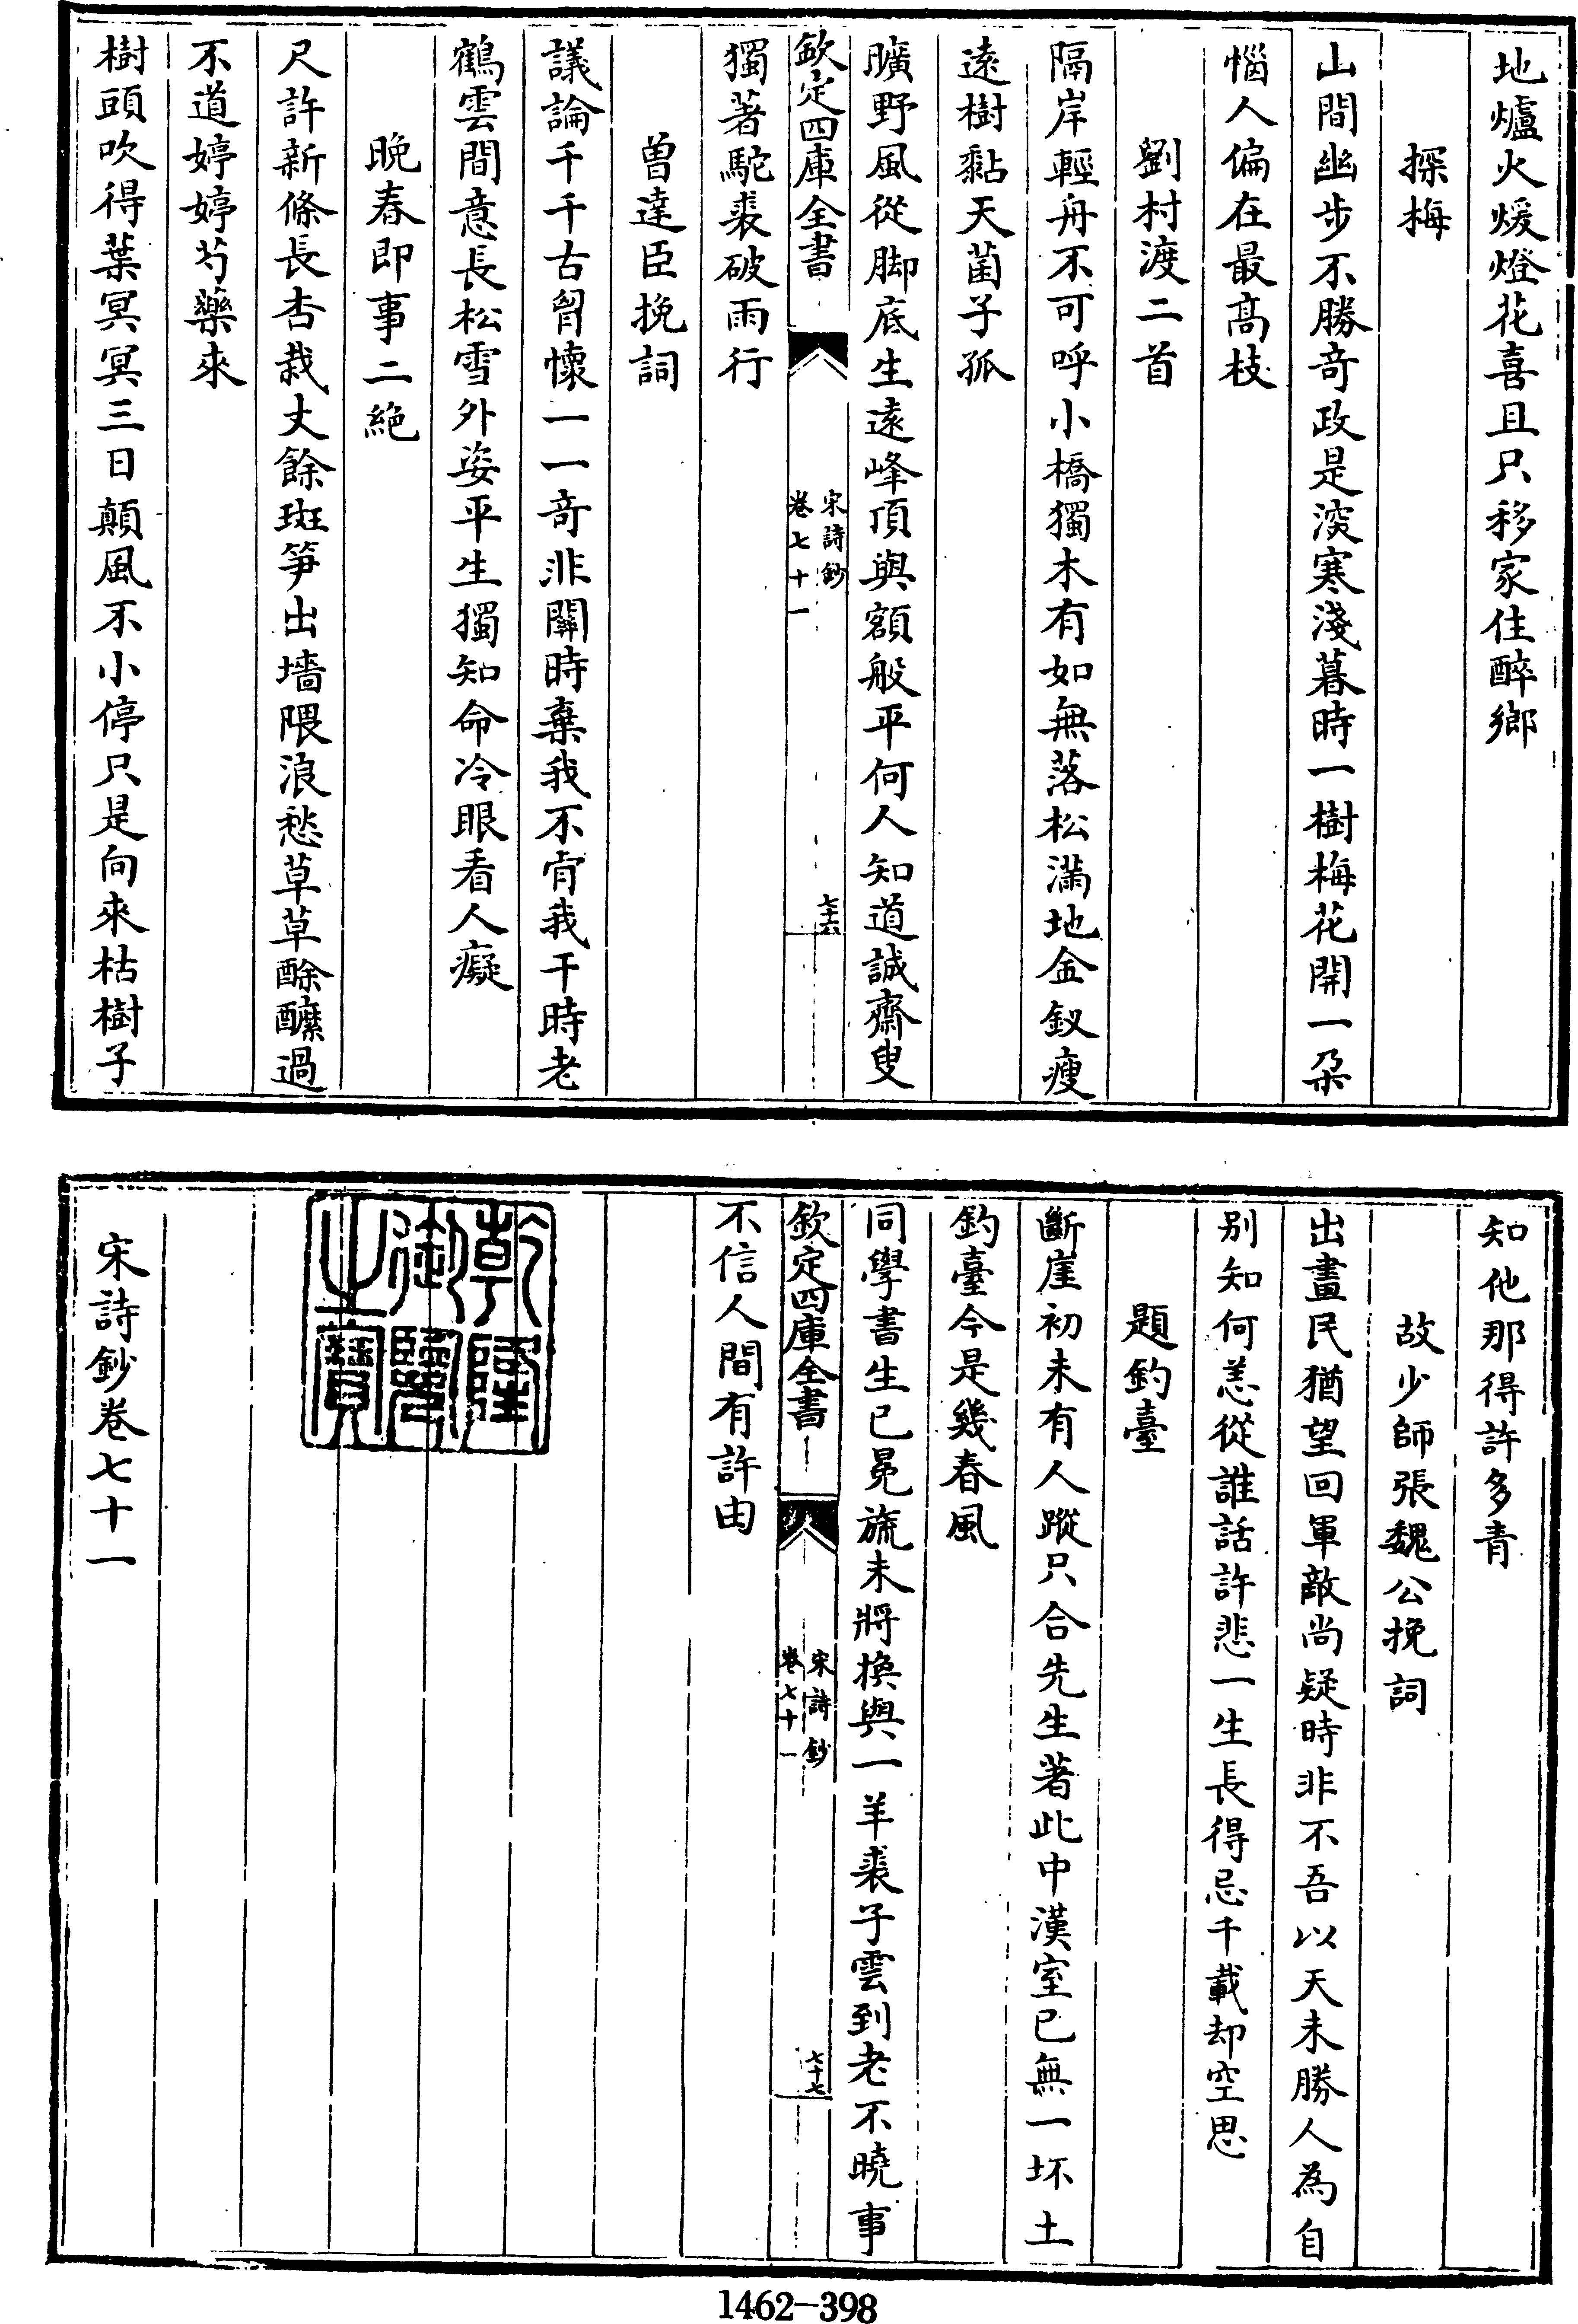 地爐火煖燈花喜且只移家住醉鄉
探梅
山間幽步不勝奇政是深寒淺暮時一樹梅花開一朶
惱人偏在最髙枝
劉村渡二首
隔岸輕舟不可呼小橋獨木有如無落松滿地金釵瘦
遠樹黏天菌子孤
曠野風從脚底生遠峰頂與額般平何人知道誠齋叟
欽定四庫全書
宋詩鈔
卷七十一
七十六
獨著駝裘破雨行
曾達臣挽詞
議論千千古胷懷一一竒非關時棄我不肯我干時老
鶴雲間意長松雪外姿平生獨知命冷眼看人癡
晩春即事二絶
尺許新條長杏栽丈餘斑笋出墻隈浪愁草草酴醿過
不道婷婷芍藥來
樹頭吹得葉冥冥三日顛風不小停只是向來枯樹子
知他那得許多青
故少師張魏公挽詞
出晝民猶望回軍敵尚疑時非不吾以天未勝人為自
别知何恙從誰話許悲一生長得忌千載却空思
題釣臺
斷崖初未有人蹤只合先生著此中漢室已無一坏土
釣臺今是幾春風
同學書生已冕旒未將換與一羊裘子雲到老不曉事
欽定四庫全書
宋詩鈔
卷七十一
七十七
不信人間有許由
乾隆御覽之寶
宋詩鈔卷七十一
1462-398